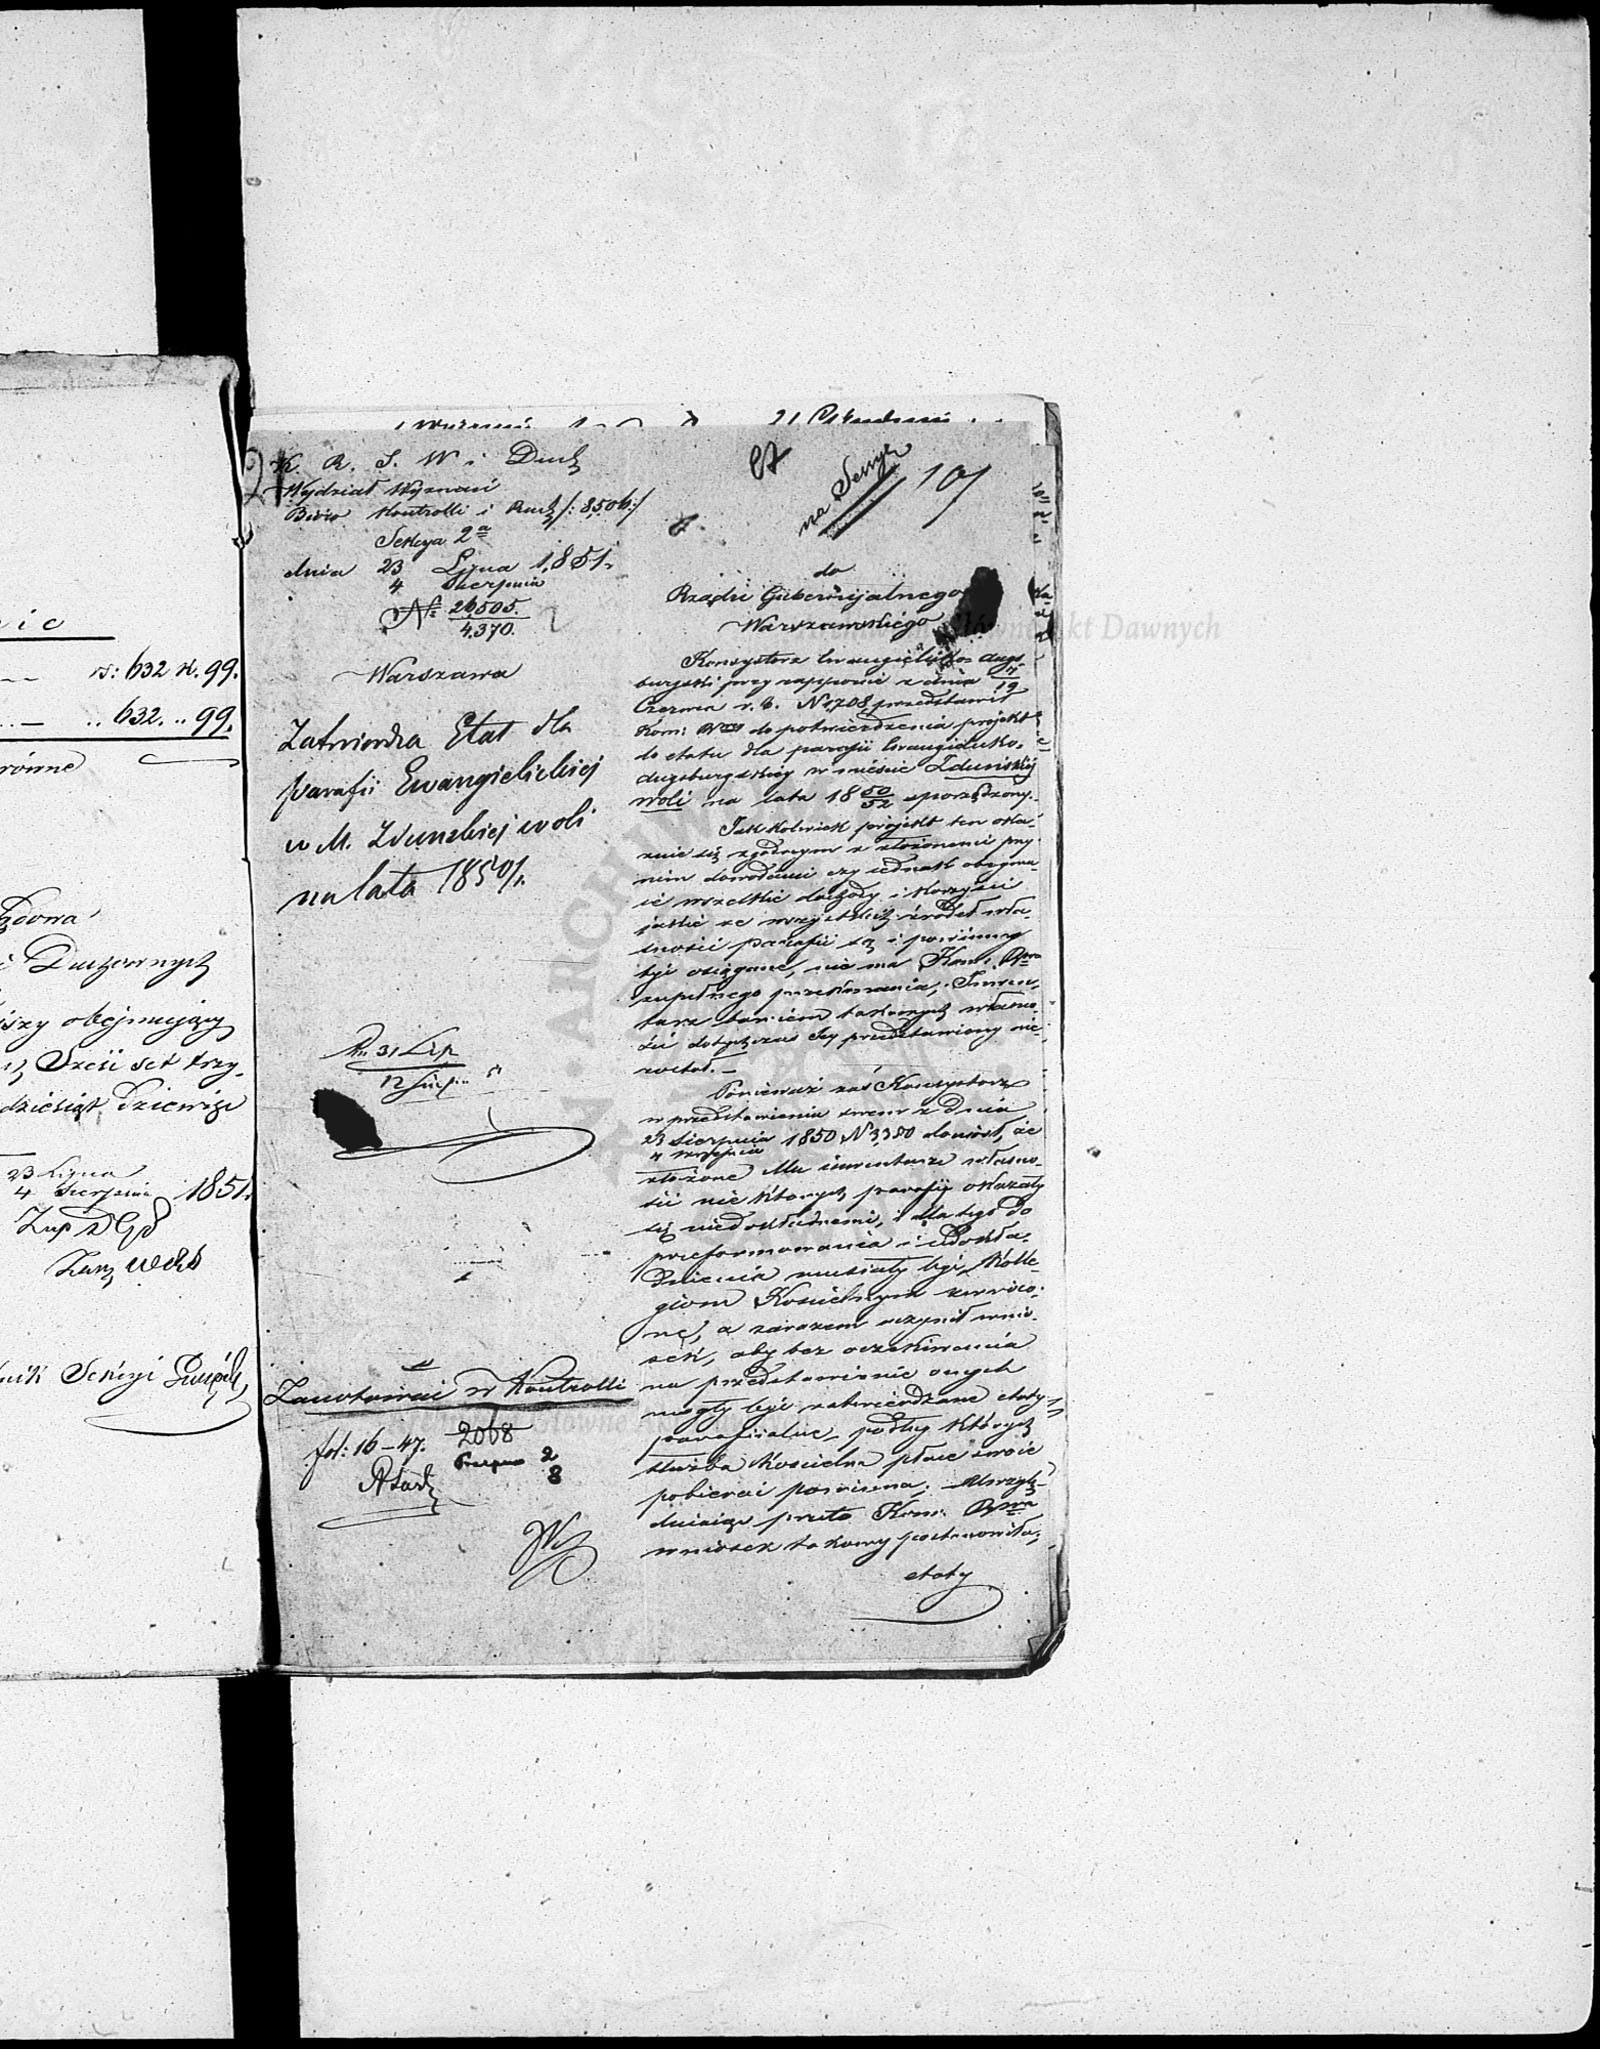 ic
rs: 632 k. 99.
.. 632. .. 99.
równe
Duchownych
obejmujący
Sześć set trzy-
dziesiąt dziewięć
23 Lipca
4 Sierpnia 1851.
Sekcyi
21
K. R. S. W i Duch
Wydział Wyznań
Biuro Kontrolli i Rach /: 8506:/
Sekcya 2ª
dnia 23 Lipca 1851.
4 Sierpnia
№ 26,505.
4,370.
Warszawa
Zatwierdza Etat dla
parafii Ewangielickiej
w M. Zduńskiej woli
na lata 1850/
31 Lip
12 Sierpn 51
Zanotować w Kontrolli
fol: 16-47. 2068
2
8
107
do
Rządu Gubernijalnego
Warszawskiego
Konsystorz Ewangielicko-Augs-
burski przy rapporcie z dnia 7/19
Czerwca r. b. N 1,708 przedstawił
Kom: Rząd do potwierdzenia projekt
do etatu dla parafii Ewangielicko-
Augsburgskiéj w mieście Zduńskiéj
woli na lata 18 50/52 sporządzony.
Jakkolwiek projekt ten oka-
zuje się zgodnym z złożonemi przy
nim dowodami czy jednak obejmu-
ie wszelkie dochody i korzyści
jakie ze wszystkich źródeł wła-
sności parafii są i powinny
być osiągane, nie ma Kom: Rwa
zupełnego przekonania, Inwen-
tarz bowiem takowych własno-
ści dotychczas Jey przedstawiony nie
został. —
Ponieważ zaś Konsystorz
w przedstawieniu swem z dnia
23 Sierpnia 1850 N 3380 doniósł, że
4 Września
złożone Mu inwentarze własno-
ści niektórych parafij okazały
się niedokładnemi, i dla tego do
przeformowania i udokła-
dnienia musiały być Kolle-
giom Kościelnym zwróco-
ne, a zarazem uczynił wnio-
sek, aby bez oczekiwania
na przedstawienie onych
mogły być zatwierdzane etaty
parafialne, podług których
służba Kościelna płace swoie
pobierać powinna; — Uwzglę-
dniając przeto Kom: Rwa
wniosek takowy postanowiła,
etaty